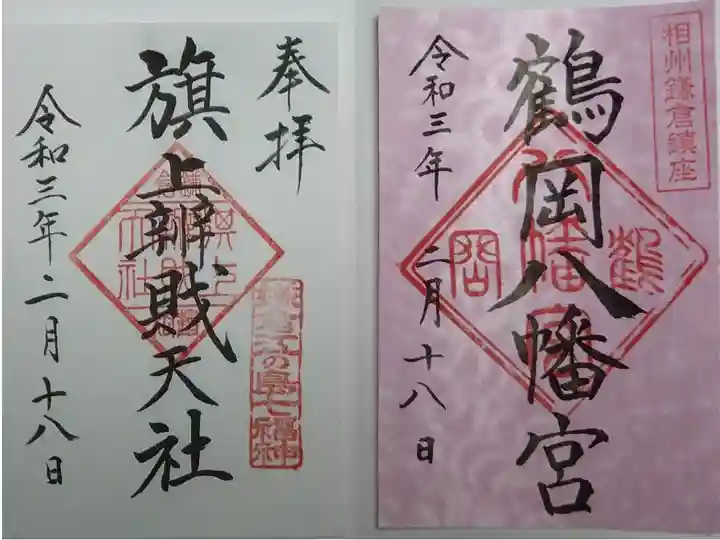 相州鎌倉鎮座
鶴岡八幡宮
鶴
八幡宮
岡
令和三年 二月十八日
奉拝
旗上辨財天社
鎌倉江の島七福神
令和三年二月十八日